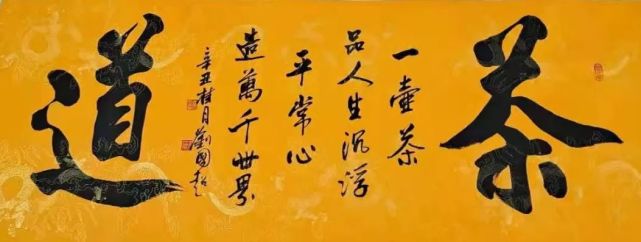 茶
一壺茶
品人生沉浮
平常心
造萬千世界
辛丑桂月劉國彰
道